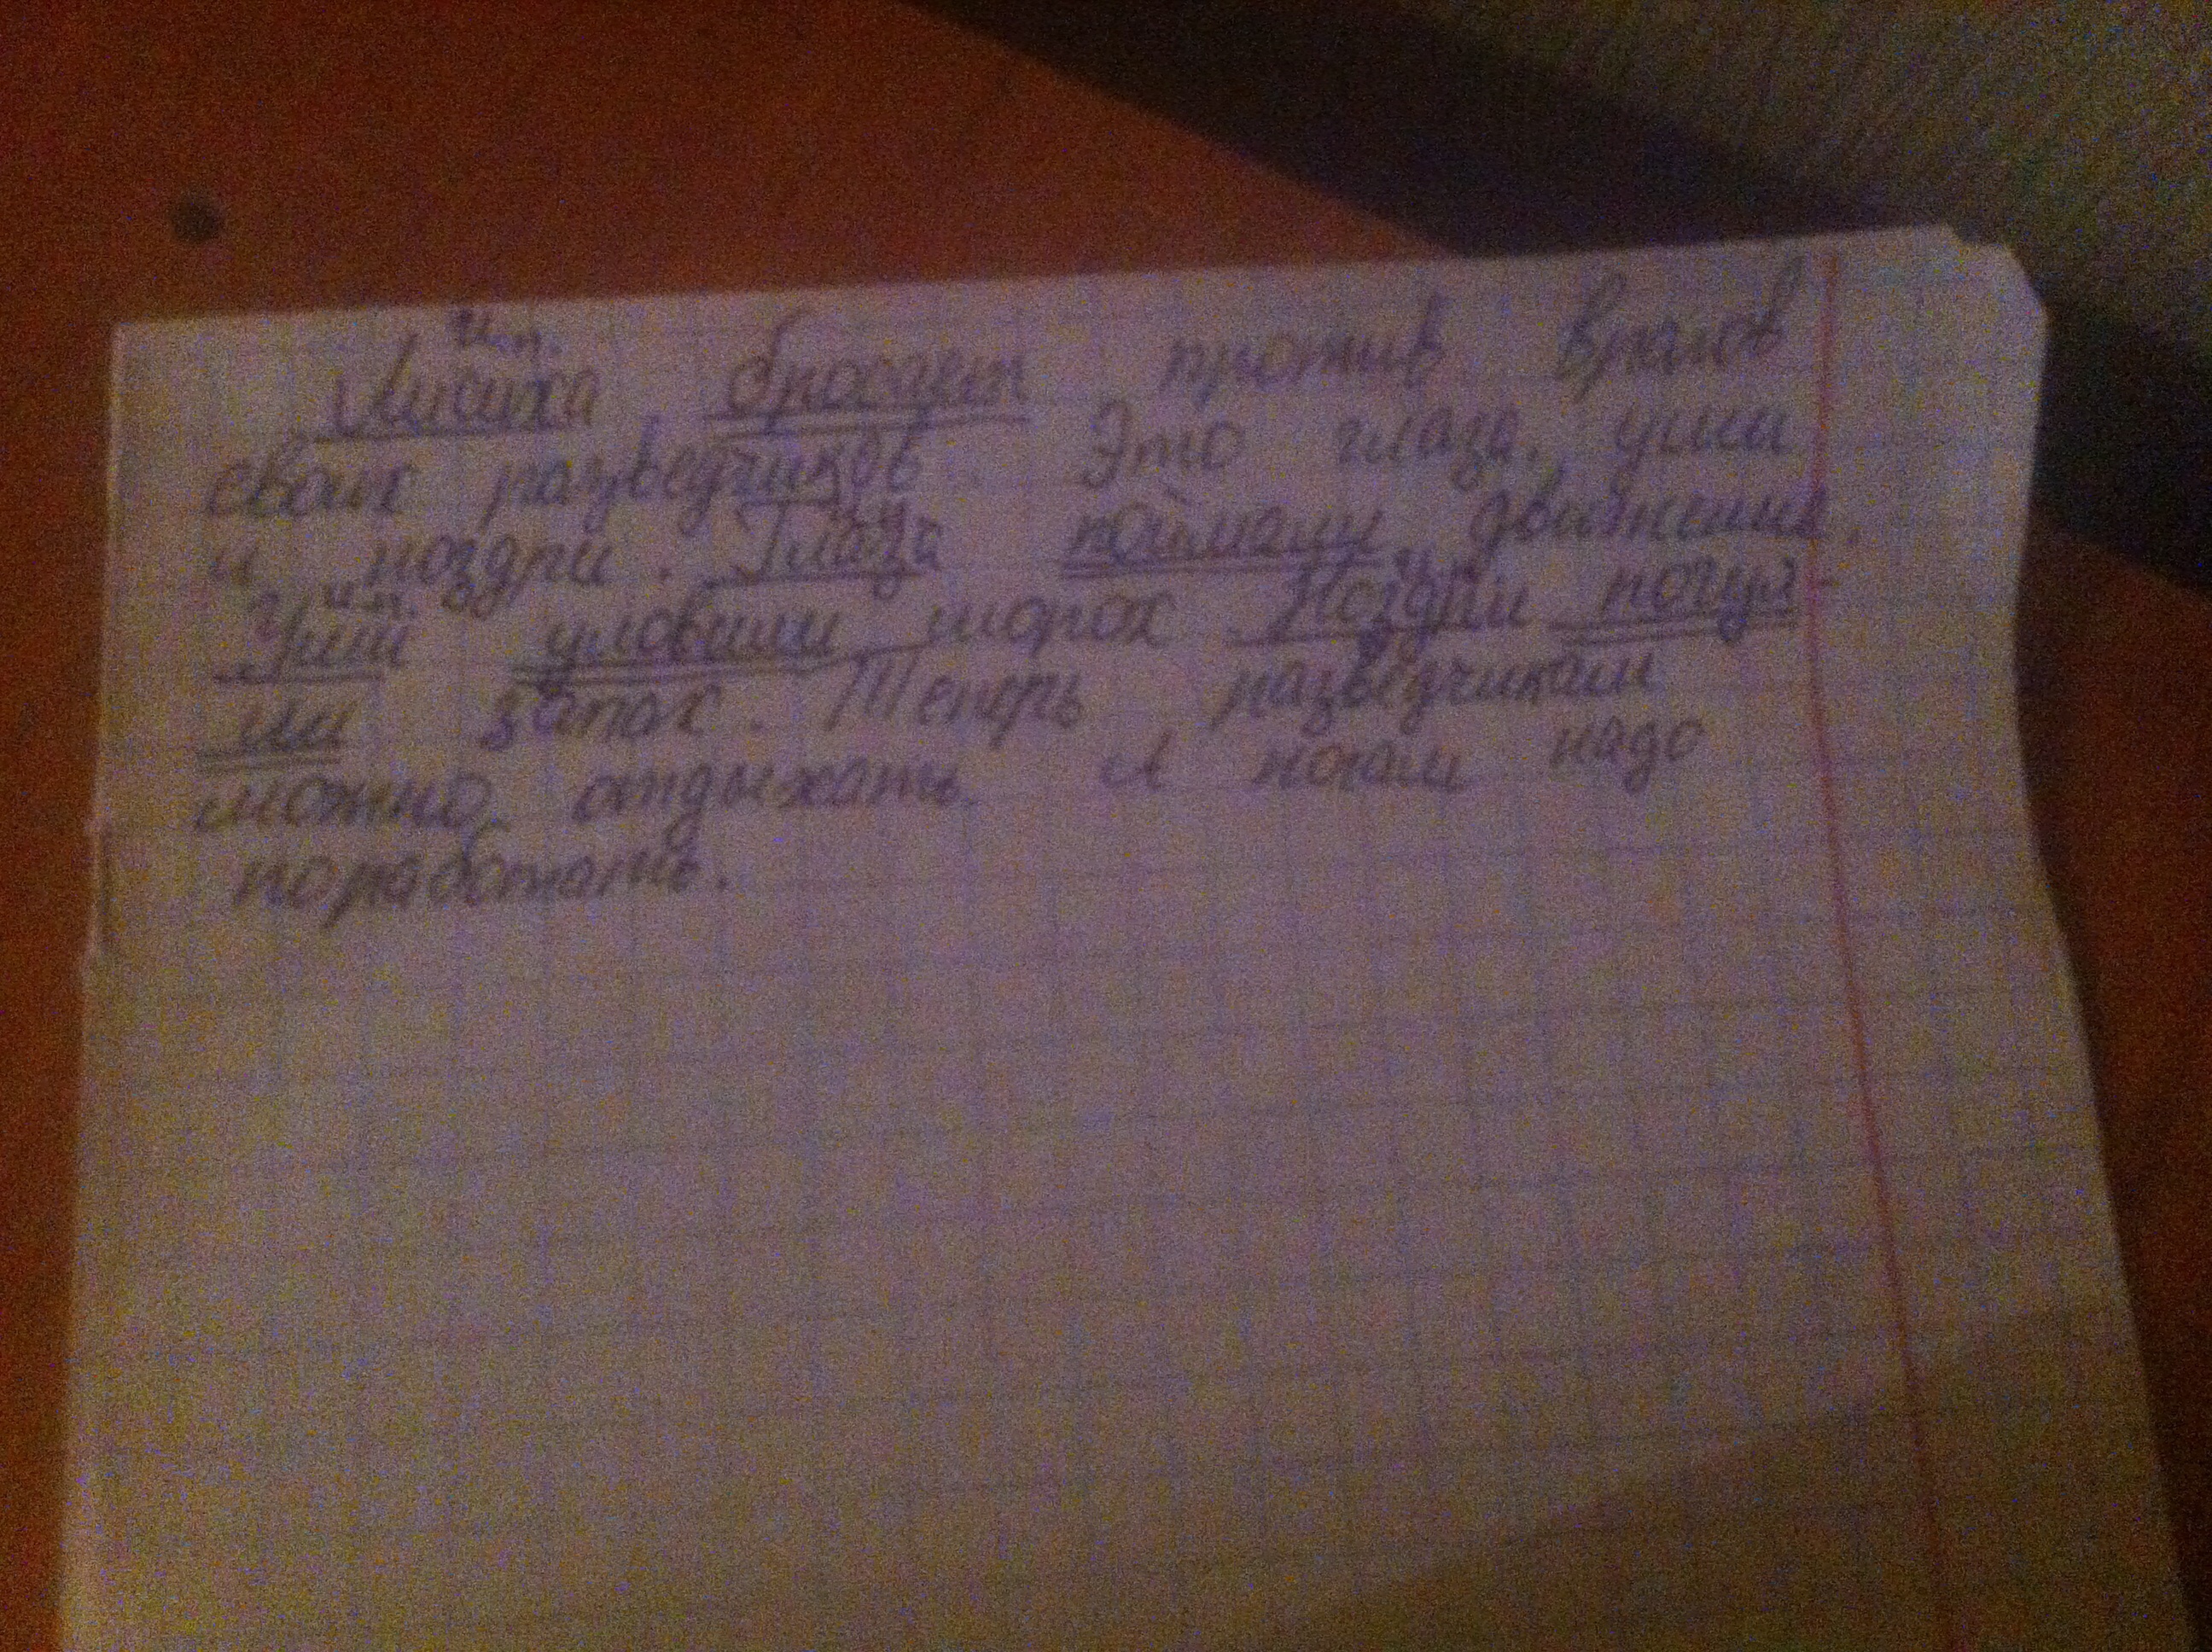 И.п.
Лисиха бросает против врагов
своих разведчиков. Это глаза, уши
и ноздри. Глаза поймали движение.
и.п.
Уши уловили шорох Ноздри почуя
ли запах. Теперь разведчикам
можно отдыхать. А ногам надо
поработать.